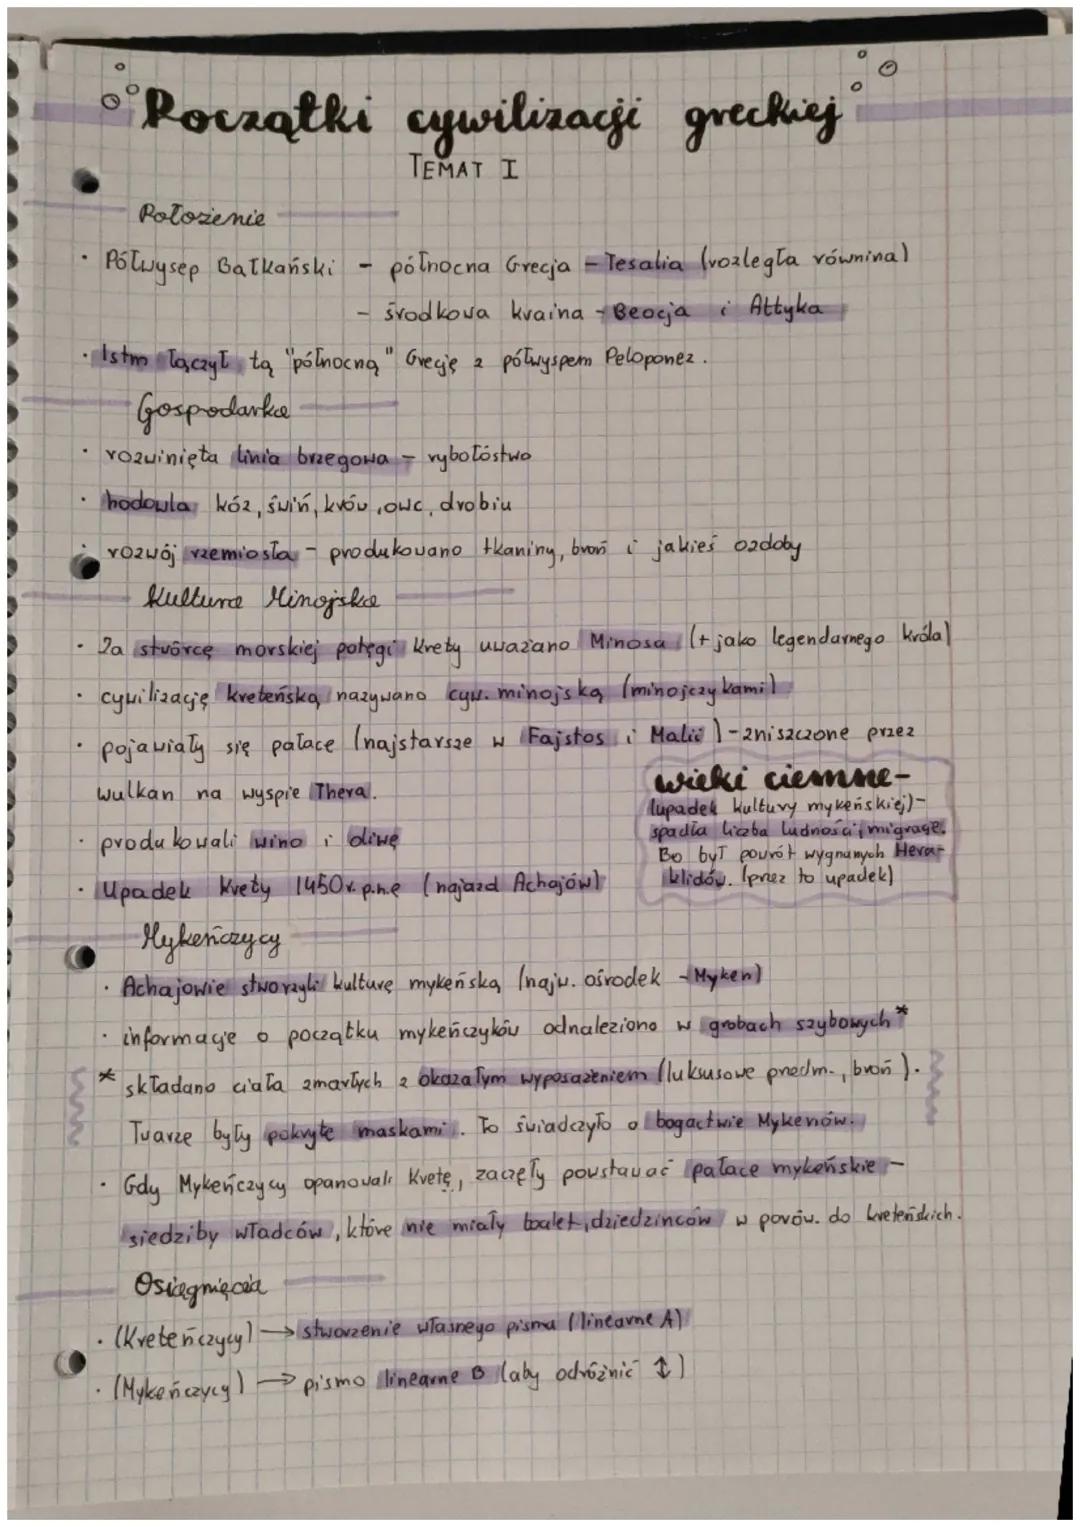 Początki cywilizacji greckiej
TEMAT I
Położenie
· Półwysep Bałkański - północna Grecja - Tesalia (rozległa równina)
- środkowa kraina - Beocja i Attyka
· Istm łączył tą "północną" Grecję z półwyspem Peloponez.
Gospodarka
· rozwinięta linia brzegowa - rybołóstwo
· hodowla kóz, świń, krów, owc, drobiu
· rozwój rzemiosła - produkowano tkaniny, broń i jakieś ozdoby
Kultura Minojska
· Za stwórcę morskiej potęgi Krety uważano Minosa (+ jako legendarnego króla)
· cywilizację kreteńską nazywano cyw. minojską (minojczykami)
· pojawiały się pałace (najstarsze w Fajstos i Malii) - zniszczone przez
wulkan na wyspie Thera.
· produkowali wino i oliwę
· Upadek Krety 1450r. p.n.e (najazd Achajów)
wieki ciemne-
(upadek kultury mykeńskiej)-
spadła liczba ludności i migracje.
Bo był powrót wygnanych Hera-
klidów. (przez to upadek)
Mykeńczycy
· Achajowie stworzyli kulturę mykeńską (najw. ośrodek - Myken)
· informacje o początku mykeńczyków odnaleziono w grobach szybowych*
* składano ciała zmarłych z okazałym wyposażeniem (luksusowe przedm., broń).
Twarze były pokryte maskami. To świadczyło o bogactwie Mykenów.
· Gdy Mykeńczycy opanowali Kretę, zaczęły powstawać pałace mykeńskie -
siedziby władców, które nie miały toalet, dziedzinców w porów. do kreteńskich.
Osiągnięcia
· (Kreteńczycy) → stworzenie własnego pisma (linearne A)
· (Mykeńczycy) → pismo linearne B (aby odróżnić ↕)